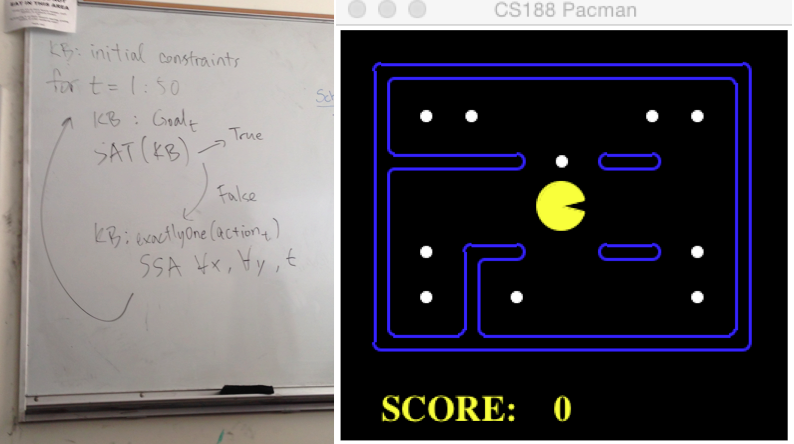 KB: initial constraints
for t = 1:50
KB : Goal_t
SAT(KB)
True
False
KB: exactlyOne(action_t)
SSA ∀x, ∀y, t
CS188 Pacman
SCORE: 0